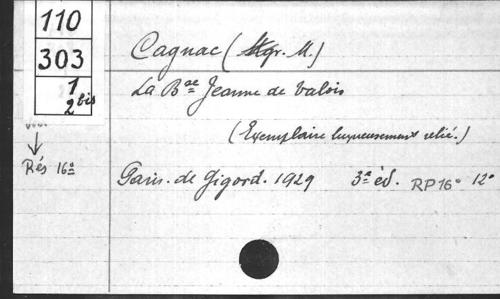 110
303
1
2 bis
Rés 16º
Cagnac (Mgr. M.)
La Bse Jeanne de Valois
(Exemplaire luxueusement relié.)
Paris. de Gigord. 1929 3e éd. RP16º 12º